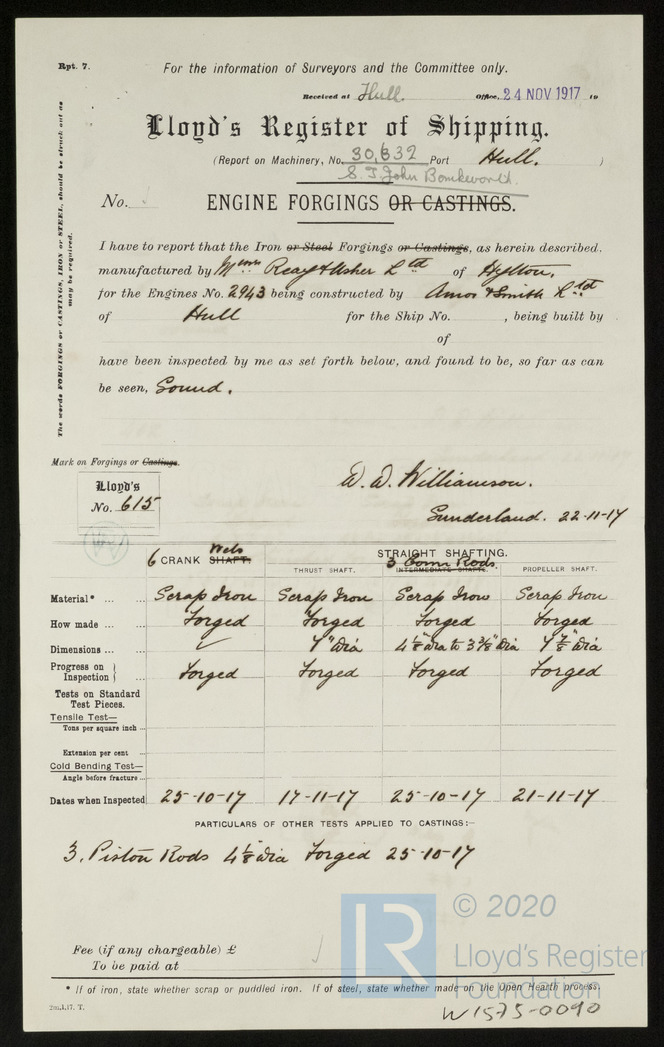 Rpt. 7.
For the information of Surveyors and the Committee only.
Received at Hull. Office, 24 NOV 1917 19
Lloyd's Register of Shipping.
(Report on Machinery, No. 30,632 Port Hull. )
S.J. John
No. ENGINE FORGINGS OR CASTINGS.
The words FORGINGS or CASTINGS, IRON or STEEL, should be struck out as may be required.
I have to report that the Iron or Steel Forgings or Castings, as herein described.
manufactured by Messrs Reay & Usher Ltd of Hylton,
for the Engines No. 2943 being constructed by Amos & Smith Ltd
of Hull for the Ship No. , being built by
of
have been inspected by me as set forth below, and found to be, so far as can
be seen, Sound.
Mark on Forgings or Castings.
Lloyd's
No. 615
W. W. Williamson.
Sunderland. 22-11-17
6 CRANK SHAFT. Webs
STRAIGHT SHAFTING.
THRUST SHAFT. INTERMEDIATE SHAFTS. 3 Conn Rods. PROPELLER SHAFT.
Material* ... ... Scrap Iron Scrap Iron Scrap Iron Scrap Iron
How made ... ... Forged Forged Forged Forged
Dimensions ... ... ✓ 7" Dia 4⅛" Dia to 3⅜" Dia 7⅞" Dia
Progress on Inspection } ... Forged Forged Forged Forged
Tests on Standard
Test Pieces.
Tensile Test—
Tons per square inch ...
Extension per cent ...
Cold Bending Test—
Angle before fracture ...
Dates when Inspected 25-10-17 17-11-17 25-10-17 21-11-17
PARTICULARS OF OTHER TESTS APPLIED TO CASTINGS:—
3. Piston Rods 4⅛" Dia Forged 25-10-17
Fee (if any chargeable) £
To be paid at
* If of iron, state whether scrap or puddled iron. If of steel, state whether made on the Open Hearth process.
2m,1,17. T.
© 2020
LR
Lloyd's Register
Foundation
W1575-0090